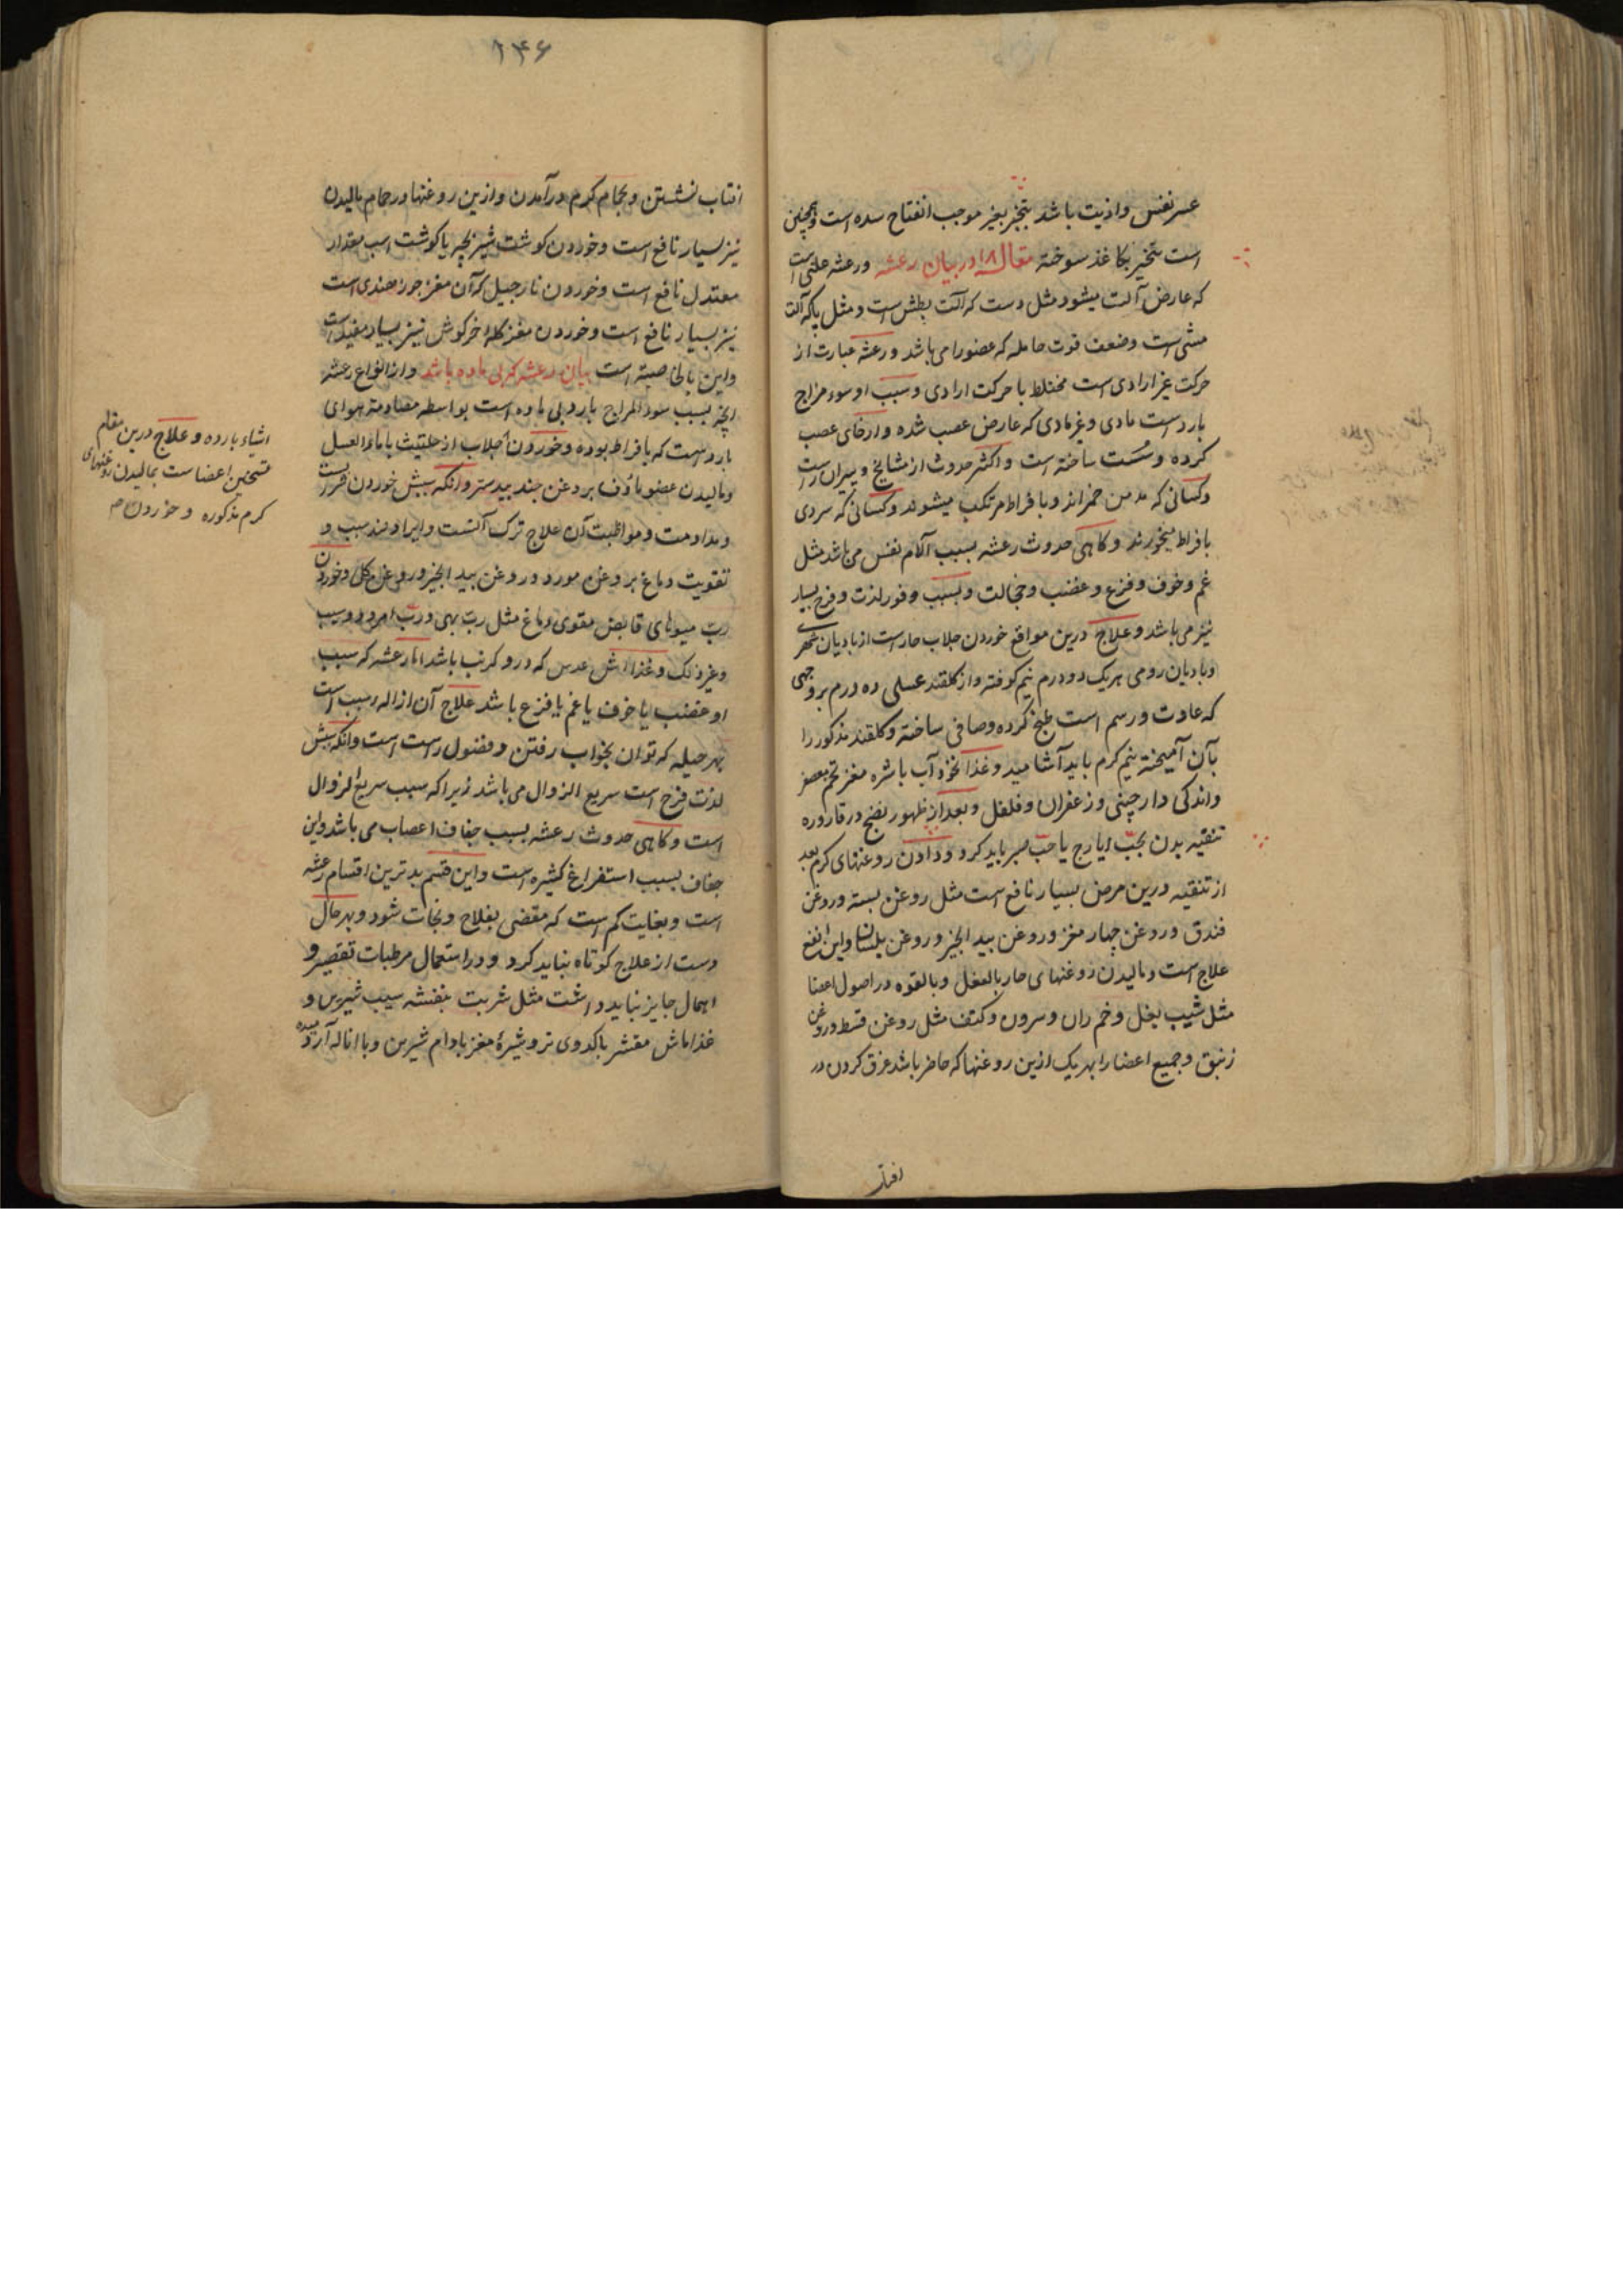 عسر نفس و اذیت باشد بتبخیر موجب انفتاح سده است و همچنین
است بتخیر بکاغذ سوخته مقاله ۱۸ در بیان رعشه و رعشه علتی است
که عارض آلت میشود مثل دست که آلت بطش است و مثل پا که آلت
مشی است و ضعف قوت حامله که عضو را می باشد و رعشه عبارت از
حرکت غیر ارادی است مختلط با حرکت ارادی و سبب او سوء مزاج
بارد است مادی و غیر مادی که عارض عصب شده و ارخای عصب
کرده و سست ساخته است و اکثر حدوث از مشایخ و پیران راست
و کسانی که مدمن خمراند و با فراط مرتکب میشوند و کسانی که سردی
بافراط میخورند و کاهی حدوث رعشه بسبب آلام نفس می باشد مثل
غم و خوف و فزع و غضب و خجالت و بسبب وفور لذت و فرح بسیار
نیز می باشد و علاج درین مواقع خوردن جلاب حار است از بادیان
و بادیان رومی هریک دو درم نیم کوفته و از کلقند عسلی ده درم بروجهی
که عادت و رسم است طبخ کرده و صافی ساخته و کلقند مذکور را
بآن آمیخته نیم کرم باید آشامید و غذا نخود آب با شره مغز تخم معصفر
و اندکی دارچینی و زعفران و فلفل و بعد از ظهور نضج در قاروره
تنقیه بدن بحب ایارج یا حب صبر باید کرد و دادن روغنهای کرم بعد
از تنقیه درین مرض بسیار نافع است مثل روغن پسته و روغن
فندق و روغن چهار مغز و روغن بید انجیر و روغن بلسان و این انفع
علاج است و مالیدن روغنهای حار بالفعل و بالقوه در اصول اعضا
مثل شیب بغل و خم ران و سرون و کتف مثل روغن قسط و روغن
زنبق و جمیع اعضا را بهر یک ازین روغنها که حاضر باشد غرق کردن در
افتاب
۱۴۶
افتاب نشستن و بحمام کرم درآمدن و ازین روغنها در حمام مالیدن
نیز بسیار نافع است و خوردن کوشت شیر بچه یا کوشت اسب مقدار
معتدل نافع است و خوردن نارجیل که آن مغز جوز هندی است
نیز بسیار نافع است و خوردن مغز کله خرکوش نیز بسیار مفید است
و این بالخاصیته است بیان رعشه که بی ماده باشد و از انواع رعشه
انچه بسبب سوء المزاج بارد بی ماده است بواسطه مصادمة هوای
بارد است که بافراط بوده و خوردن جلاب از حلتیت با ماء العسل
و مالیدن عضو ماؤف بروغن جند بیدستر و آنکه سببش خوردن
و مداومت و مواظبت آن علاج ترک آنست و ایراد ضد سبب و
تقویت دماغ بروغن مورد و روغن بید انجیر و روغن کل و خوردن
رب میوهای قابض مقوی دماغ مثل رب بهی و رب امرود و سیب
و غیر ذلک و غذا اش عدس که درو کرنب باشد اما رعشه که سبب
او غضب یا خوف یا غم یا فزع باشد علاج آن ازاله سبب است
بهر حیله که توان بخواب رفتن و مقبول راست است و آنکه سببش
لذت فرح است سریع الزوال می باشد زیرا که سبب سریع الزوال
است و کاهی حدوث رعشه بسبب جفاف اعصاب می باشد و این
جفاف بسبب استفراغ کثیره است و این قسم بدترین اقسام رعشه
است و بغایت کم است که مقضی بفلاح و نجات شود و بهر حال
دست از علاج کوتاه نباید کرد و در استعمال مرطبات تقصیر و
اهمال جایز نباید داشت مثل شربت بنفشه سیب شیرین و
غذا ماش مقشر با کدوی تر و شیرهٔ مغز بادام شیرین و با اناله آرد میده
اشیاء بارده و علاج درین مقام
تسخین اعضاست بمالیدن روغنهای
کرم مذکوره و خوردن